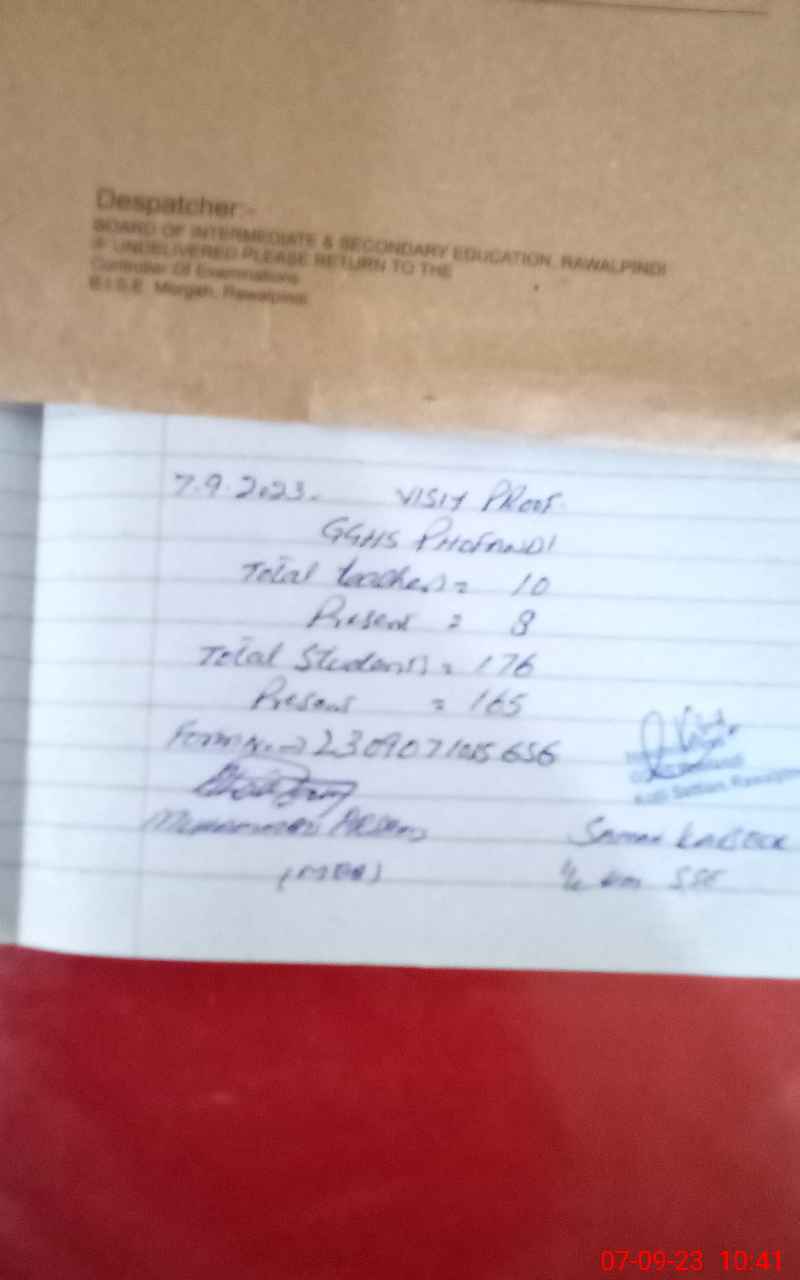 Despatcher:-
BOARD OF INTERMEDIATE & SECONDARY EDUCATION, RAWALPINDI
IF UNDELIVERED PLEASE RETURN TO THE
Controller Of Examinations
B.I.S.E. Morgah, Rawalpindi
7.9.2023. VISIT PROOF.
GGHS PHOFANDI
Total teachers = 10
Present = 8
Total Students = 176
Present = 165
Form No. 
Muhammad
(MEA) I/c HM SSE
07-09-23 10:41